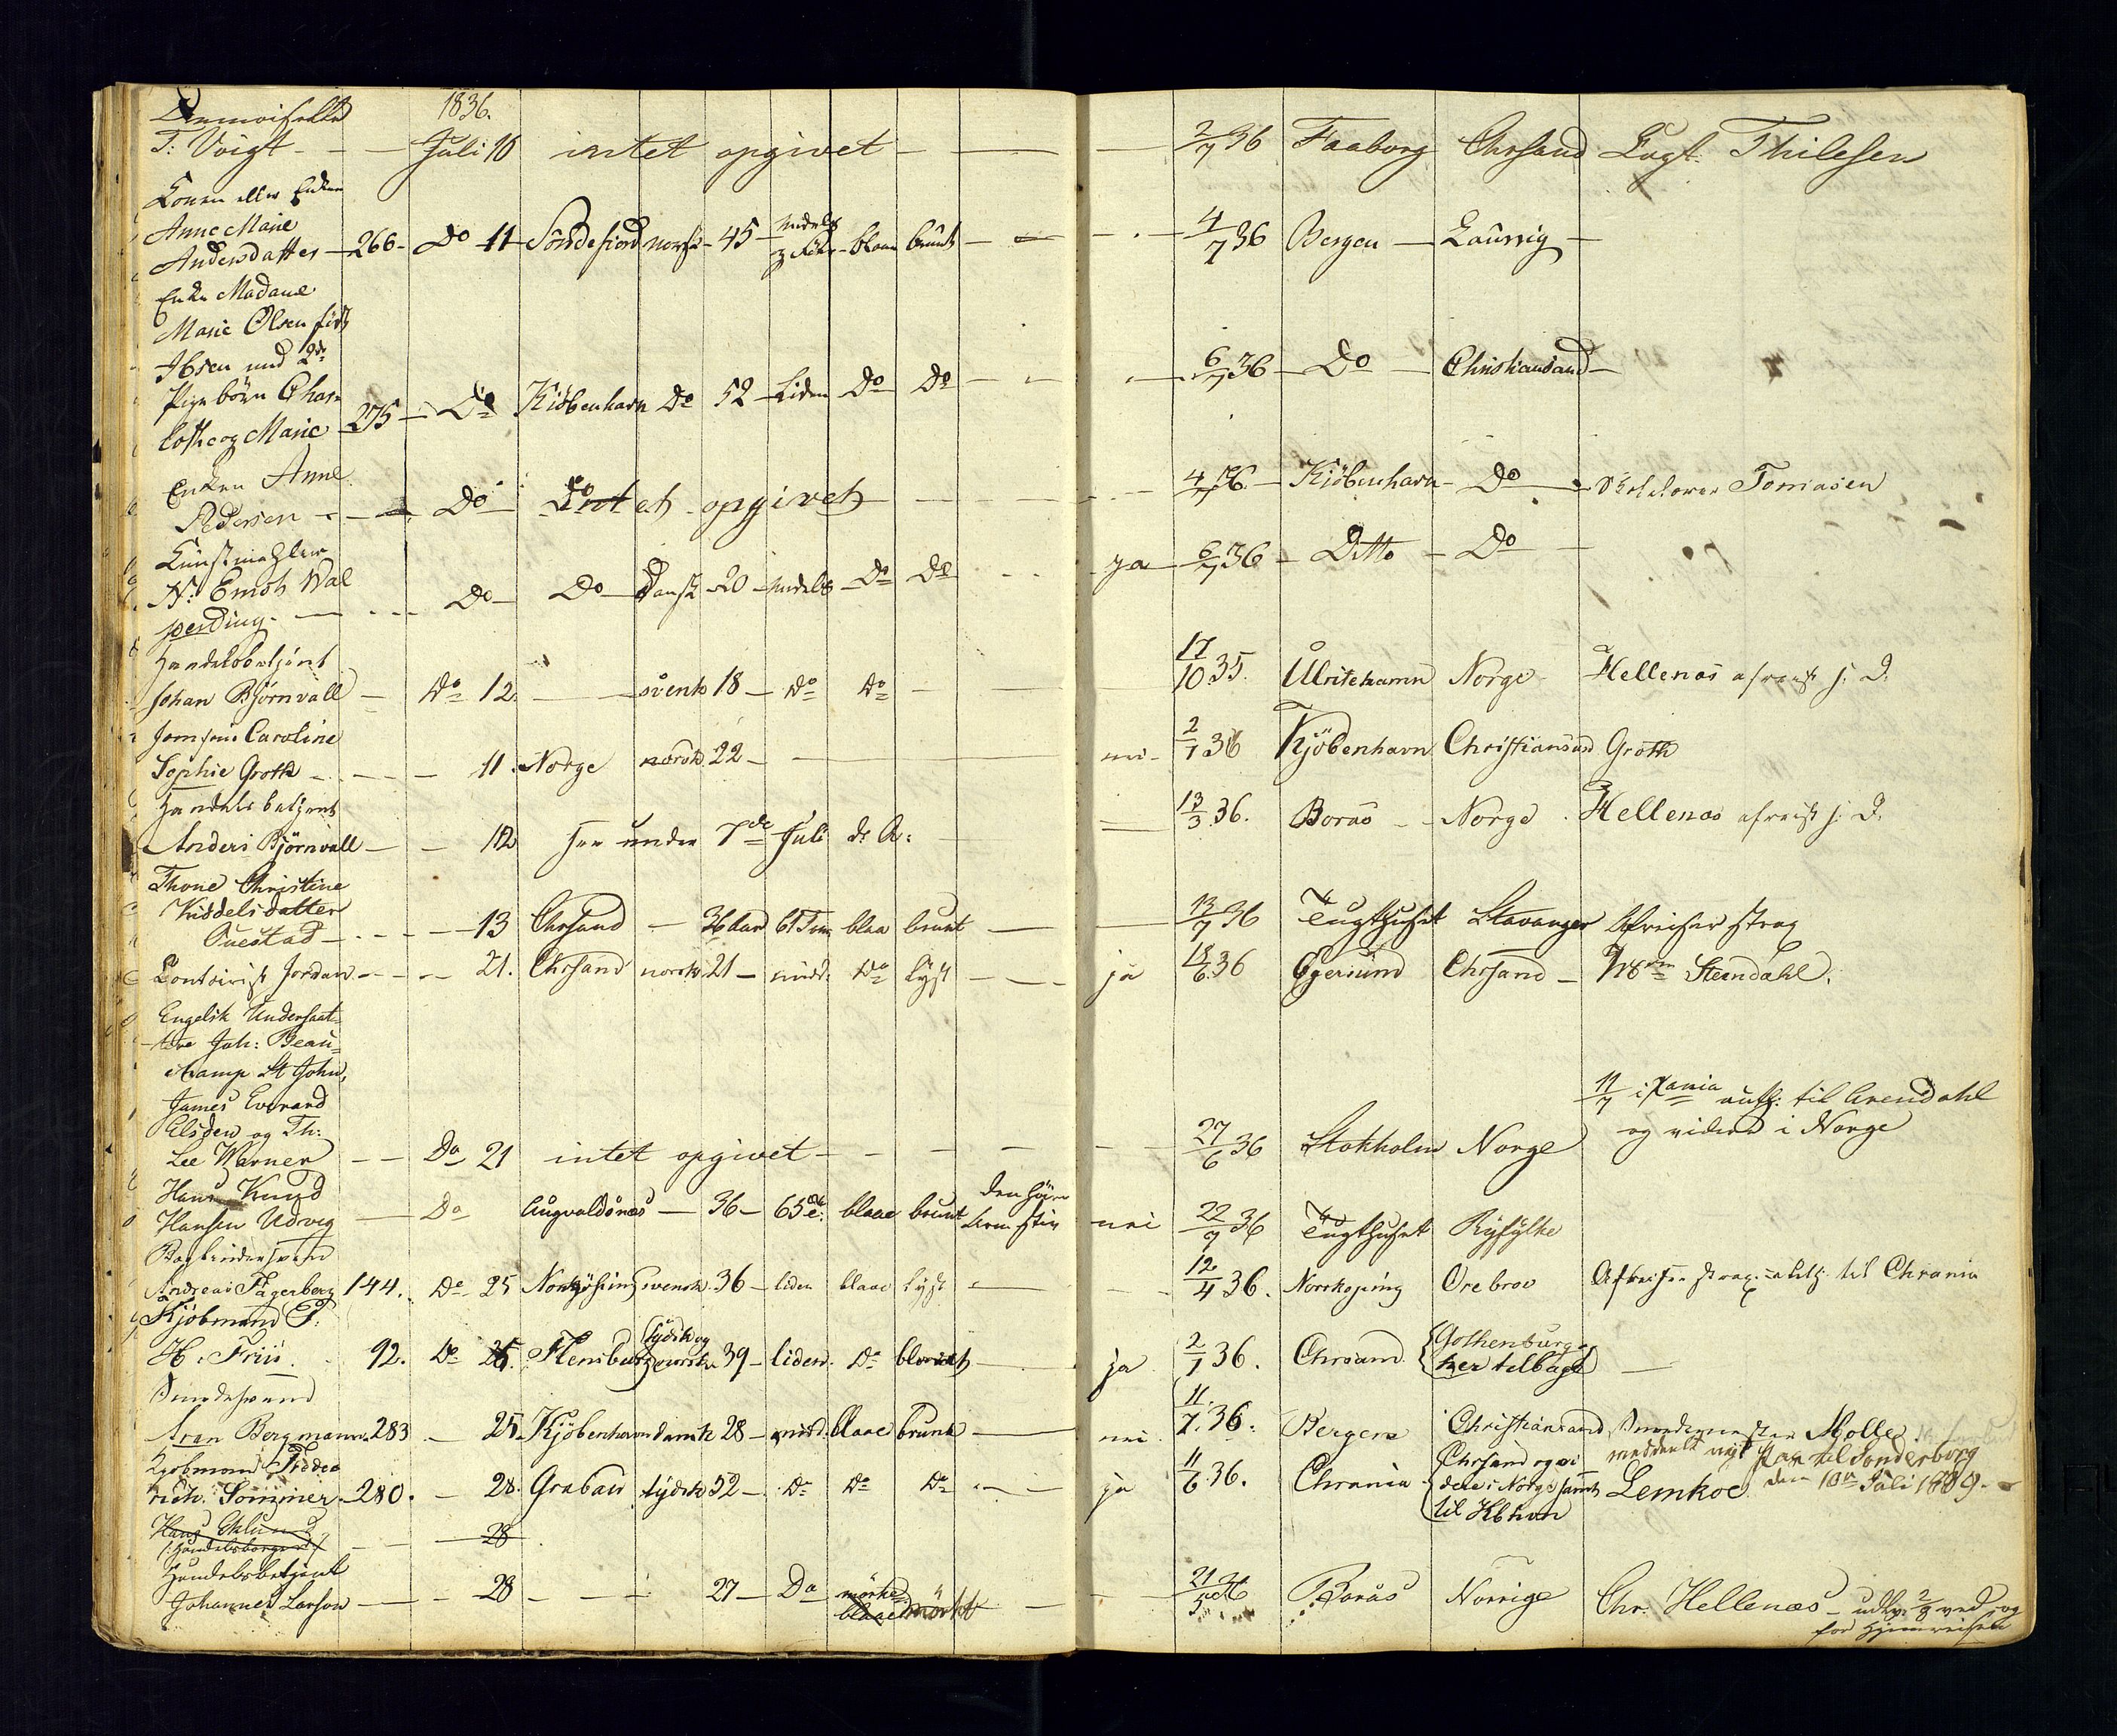 1836.
Demoiselle
T: Voigt - - Juli 10 intet opgivet - 2/7 36 Faaborg Chrsand Logt. Thilesen
Konen eller Enken
Anne Marie
Andersdatter - 266 - Do 11 - norsk - 45 - middels - blaae bruunt - 4/7 36 Bergen - Laurvig -
Enke Madame
Marie Olsen født
Ibsen med 2de
Pigebørn Char-
lothe og Marie - 275 - Do Kiøbenhavn Do 52 - Liden Do Do - 6/7 36 - Do - Christiansand -
Enken Anne
Pedersen - Do - Intet opgivet - 4/7 36 - Kiöbenhavn - Do - Tomasen
Kunstmahler
N: Emoh Wal
perding - Do - Do - Dansk - 20 - middels - Do Do - ja - 6/7 36 - Ditto - Do -
Handelsbetjent
Johan Bjørnvall - Do 12. - svensk 18 - Do Do - 17/10 35. Ulricehamn Norge Hellenas afreist s: D.
Jomfrue Caroline
Sophie Groth - - 11. Norge norsk 22 - nei - 2/7 36 Kjöbenhavn Christiansand Groth
Handels betjent
Anders Bjørnvall - - 12 see under 7de Juli d: A: - 13/3 36. Borås - Norge. Hellenas afreist s: D.
Thone Christine
Kiddelsdatter
Questad - - 13 Chrsand - 36 Aar 61 Tom blaa bruunt - 13/7 36 Tugthuset Stavanger Afreiser strax
Contoirist Jordan - - 21. Chrsand norsk 21 - midd. Do lyst - ja 18/6 36 Egersund Chrsand - Stendahl.
Engelsk Undersaat-
tere Joh: Beau-
champ St John,
James Everard
Elsden og Th:
Lee Warner - Do 21 intet opgivet - 27/6 36 Stokholm Norge 11/7 i Xania til Arendahl
og videre i Norge
Hans Knud
Hansen Udveg - Do Augvaldsnæs - 36 - 65 blaae bruunt den høire arm stiv nei 22/7 36 Tugthuset Ryfylke
Bogbindersvend
Andreas Fagerberg 144. Do 25 Norkjøping svensk 36 - liden blaae lyst - 12/4 36. Norrkoping Orebroe Afreiser strax til Chrania
Kjøbmand P.
H. Friis. 92. Do 25. Flensburg tydsk og norsk 39 - liden Do - ja 2/7 36. Chrsand. Gothenburg og
her tilbage -
Smedesvend
Aron Bergmann 283 - 25. Kjöbenhavn dansk 28 - midd. blaae bruunt - nei. 11/7 36. Bergen Christiansand, Smedemester Molle
meddeelt nyt Pas til Sonderborg
den 10de Juli
Kjøbmand Frede-
rich. Sommer. 280. - 28. Grabau tydsk 52 - Do Do Do - ja 11/6 36. Chrania Chrsand og vi-
dere i Norge samt
til Kbhvn Lemkoe.
Hans Eklund
/: Handelsborger :/ - - 28
Handelsbetjent
Johannes Larson - - 28 - - 27 - Do mørke
blaae mørkt - 21/5 Borås Norrige Chr. Hellenæs - ved og
for Hjemreisen